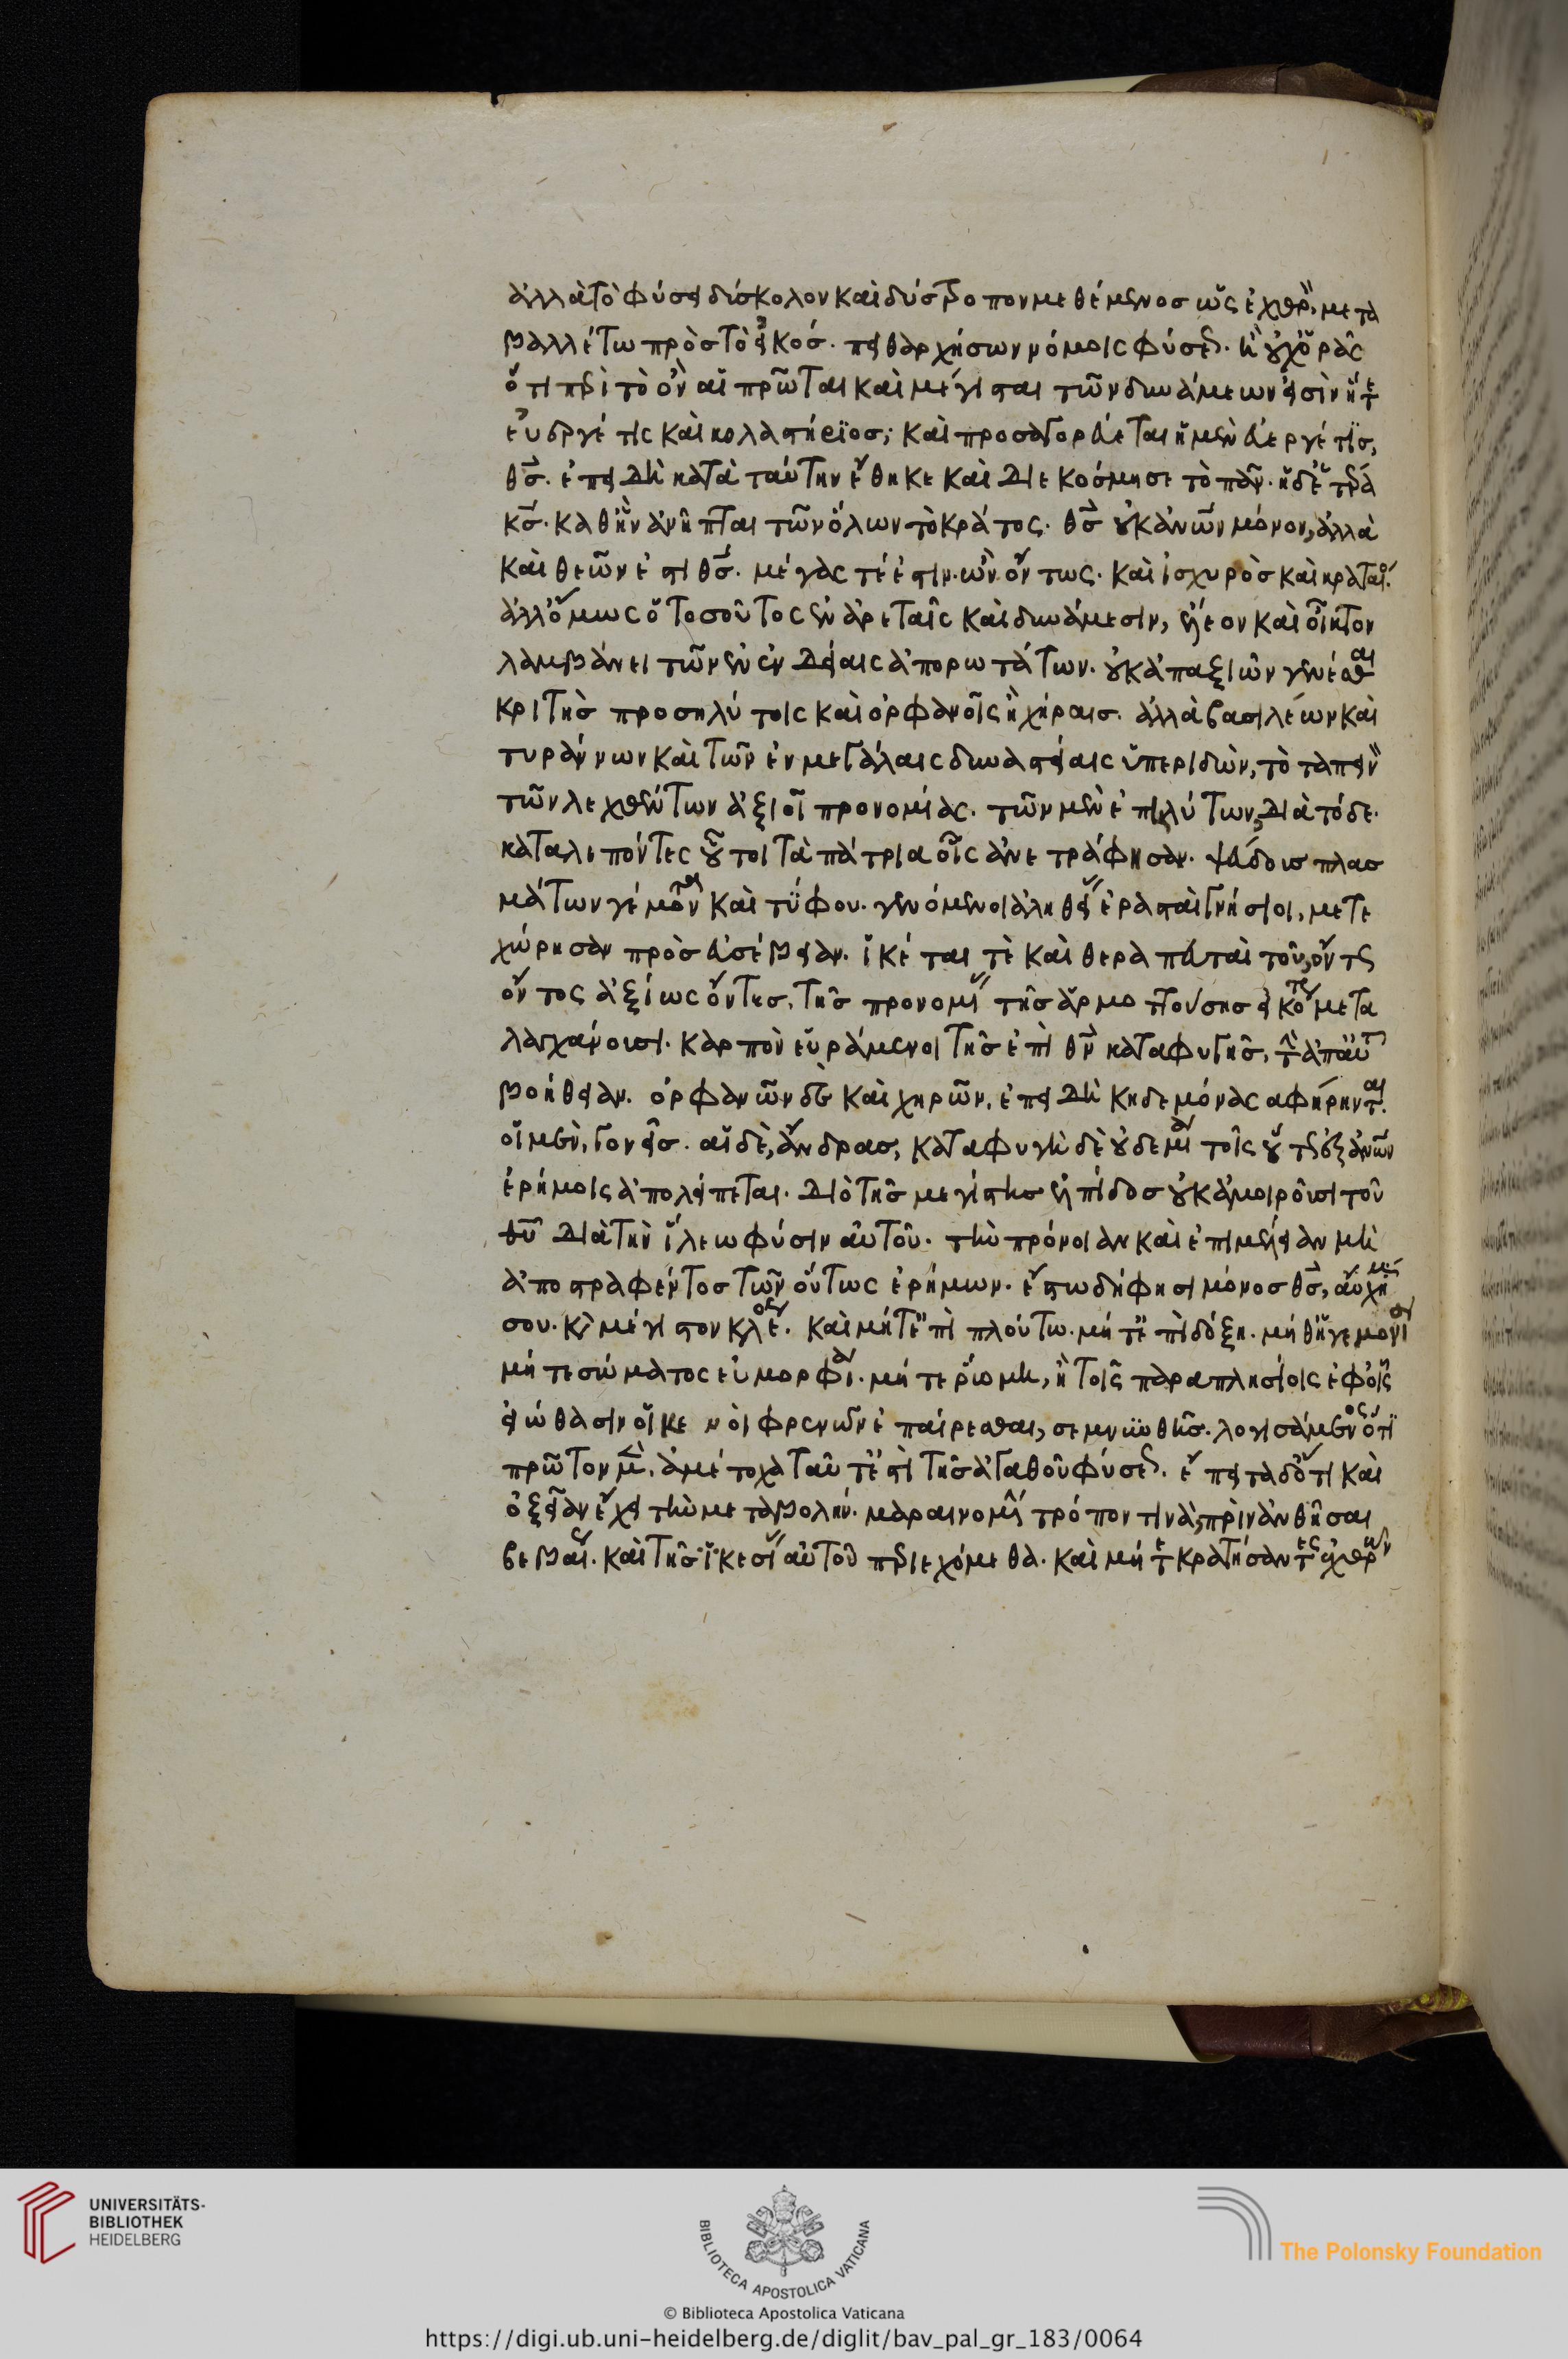 ἀλλὰ τὸ φύσει δύσκολον καὶ δύστροπον μεθέμενος ὡς ἐχθρὸν, μετα
βαλλέτω πρὸς τὸ εἰκός. πειθαρχήσων νόμοις φύσεως. ἢ οὐχ ὁρᾶς
ὅτι περὶ τὸ ὂν αἱ πρῶται καὶ μέγισται τῶν δυνάμεων εἰσὶν ἥ τε
εὐεργέτις καὶ κολαστήριος; καὶ προσαγορεύεται ἡ μὲν εὐεργέτις,
θς. ἐπειδὴ κατὰ ταύτην ἔθηκε καὶ διεκόσμησε τὸ πᾶν. ἡ δὲ ἑτέρα
κς. καθ' ἣν ἀνῆπται τῶν ὅλων τὸ κράτος. θς οὐκ ἀνων μόνον, ἀλλὰ
καὶ θεῶν ἐστι θς. μέγας τέ ἐστιν. ὢν ὄντως. καὶ ἰσχυρὸς καὶ κραταιός
ἀλλ' ὅμως ὁ τοσοῦτος ἐν ἀρεταῖς καὶ δυνάμεσιν, ἔλεον καὶ οἶκτον
λαμβάνει τῶν ἐν ἐνδείαις ἀπορωτάτων. οὐκ ἀπαξιῶν γενέσθαι
κριτὴς προσηλύτοις καὶ ὀρφανοῖς ἢ χήραις. ἀλλὰ βασιλέων καὶ
τυράννων καὶ τῶν ἐν μεγάλαις δυναστείαις ὑπεριδὼν, τὸ ταπεινὸν
τῶν λεχθέντων ἀξιοῖ προνομίας. τῶν μὲν ἐπηλύτων, διὰ τόδε.
καταλιπόντες οὗτοι τὰ πάτρια οἷς ἀνετράφησαν. ψεύδους πλασ
μάτων γέμοντα καὶ τύφου. γενόμενοι ἀληθείας ἐρασταὶ γνήσιοι, μετε
χώρησαν πρὸς εὐσέβειαν. ἱκέται τὲ καὶ θεραπευταὶ τοῦ ὄντως
ὄντος ἀξίως ὄντες, τῆς προνομίας τῆς ἁρμοττούσης εἰκότως μετα
λαγχάνουσι. καρπὸν εὑράμενοι τῆς ἐπὶ θν καταφυγῆς, τὴν ἀπ' αὐτοῦ
βοήθειαν. ὀρφανῶν δὲ καὶ χηρῶν, ἐπειδὴ κηδεμόνας αφήρηνται.
οἱ μὲν, γονεῖς. αἱ δὲ, ἄνδρας, καταφυγὴ δὲ οὐδεμία τοῖς οὕτως ἐξ ἀνων
ἐρήμοις ἀπολείπεται. διὸ τῆς μεγίστης ἐλπίδος οὐκ ἀμοιροῦσι τοῦ
θυ διὰ τὴν ἵλεω φύσιν αὐτοῦ. τὴν πρόνοιαν καὶ ἐπιμέλειαν μὴ
ἀποστραφέντος τῶν οὕτως ἐρήμων. ἔστω δή φησι μόνος θς, αὔχημά
σου. καὶ μέγιστον κλέος. καὶ μήτε ἐπὶ πλούτω. μήτε ἐπὶ δόξη. μήθ' ἡγεμονία
μήτε σώματος εὐμορφία. μήτε ῥώμη, ἢ τοῖς παραπλησίοις ἐφ' οἷς
εἰώθασιν οἱ κενοὶ φρενῶν ἐπαίρεσθαι, σεμνυνθῆς. λογισάμενος ὅτι
πρῶτον μὲν, ἀμέτοχα ταῦτ' ἐστὶ τῆς ἀγαθοῦ φύσεως. ἔπειτα δ' ὅτι καὶ
ὀξεῖαν ἔχει τὴν μεταβολήν. μαραινομένα τρόπον τινὰ, πρὶν ἀνθῆσαι
βεβαίως. καὶ τῆς ἱκεσίας αὐτοῦ περιεχόμεθα. καὶ μήτε κρατήσαντες ἐχθρῶν
UNIVERSITÄTS-
BIBLIOTHEK
HEIDELBERG
BIBLIOTECA APOSTOLICA VATICANA
The Polonsky Foundation
© Biblioteca Apostolica Vaticana
https://digi.ub.uni-heidelberg.de/diglit/bav_pal_gr_183/0064